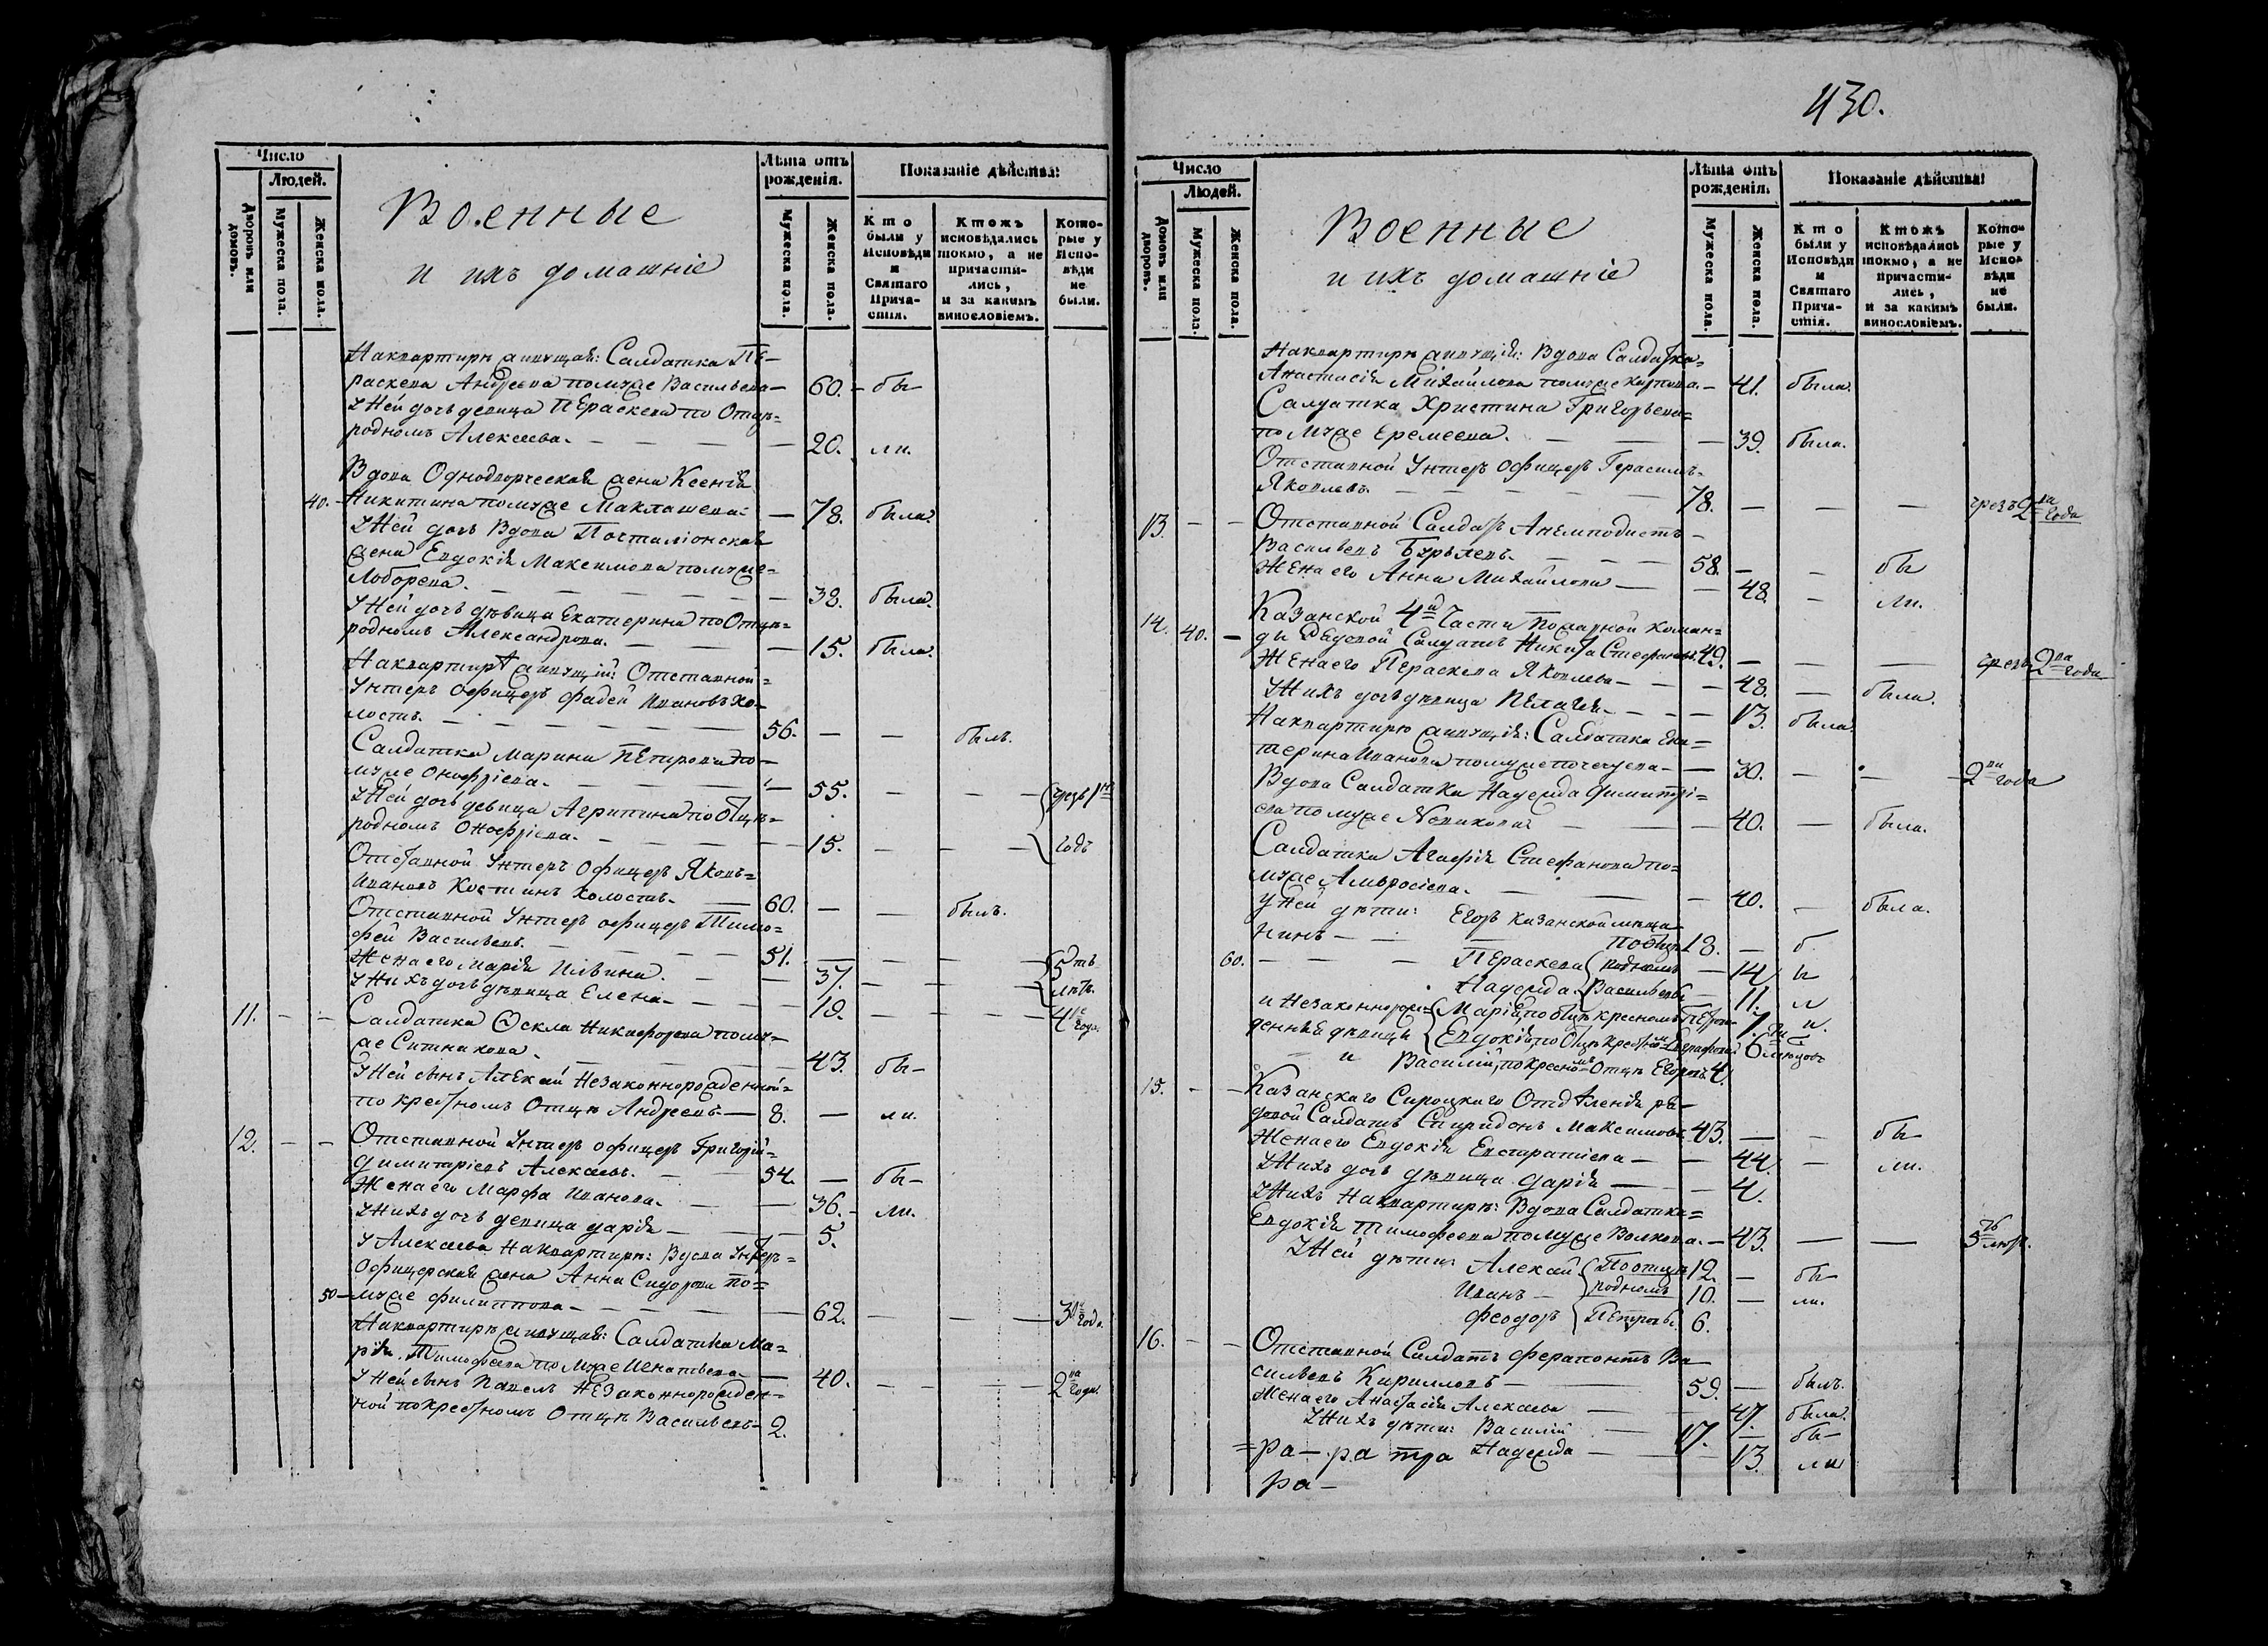 430.
Число
Людей.
Дворовъ или домовъ.
Мужеска пола.
Женска пола.
Военные
и ихъ домашніе
Лѣта отъ рожденія.
Мужеска пола.
Женска пола.
Показаніе дѣйства:
Кто были у Исповѣди и Святаго Прича-стія.
Ктожъ исповѣдались токмо, а не причасти-лись, и за какимъ винословіемъ.
Кото-рые у Испо-вѣди не были.
На квартирѣ живущая: Салдатка Пе-
раскева Андреева по мужѣ Васильева — 60. — бы—
У Ней дочь девица Пераскева по Отцѣ=
родномъ Алексеева. — 20. ли.
Вдова Однодворческая жена Ксенія
40. — Никитина по мужѣ Маклашева — 78. была.
У Ней дочь Вдова Почталіонская
жена Евдокія Максимова по муже=
Лоборева. — 38. была.
У Ней дочь дѣвица Екатерина по Отцѣ=
родномъ Александрова. — 15. была.
На квартирѣ живущій: Отставной=
Унтеръ офицеръ Фадей Ивановъ хо-
лостъ. — 56. — — былъ.
Салдатка Марина Петрова по-
мужѣ Онофріева. — 55. — — — чрезъ 1нъ
У Ней дочь девица Агрипина по Отцѣ=
родномъ Онофріева. — 15. — — — годъ
Отставной Унтеръ офицеръ Яковъ=
Ивановъ Костинъ холостъ. — 60. — — былъ.
Отставной Унтеръ офицеръ Тимо=
фей Васильевъ. — 51. — — — 5ть
Жена его Марія Ильина. — 37. — — лѣтъ.
У Нихъ дочь дѣвица Елена — 19. — — — 4ре
11. — — Салдатка Фекла Никифорова по му- года.
жѣ Ситникова. — 43. бы—
У Ней сынъ Алексѣй Незаконнорожденной=
по крестномъ Отцѣ Андреевъ — 8. — ли.
12. — — Отставной Унтеръ офицеръ Григорій=
Димитріевъ Алексеевъ. — 54. — бы—
Жена его Марфа Иванова. — 36. — ли.
У Нихъ дочь девица Дарія — 5.
У Алексеева На квартирѣ: Вдова Унтеръ=
офицерская жена Анна Сидорова по=
50 — мужѣ Филиппова — 62. — — — 3и года.
На квартирѣ живущая: Салдатка Ма=
рія Тимофеева по мужѣ Игнатьева — 40. — — — 2ва года.
У Ней сынъ Павелъ Незаконнорожден=
ной по крестномъ Отцѣ Васильевъ — 2.
Число
Людей.
Домовъ или дворовъ.
Мужеска пола.
Женска пола.
Военные
и ихъ домашніе
Лѣта отъ рожденія.
Мужеска пола.
Женска пола.
Показаніе дѣйства:
Кто были у Исповѣди и Святаго Прича-стія.
Ктожъ исповѣдались токмо, а не причасти-лись, и за какимъ винословіемъ.
Кото-рые у Испо-вѣди не были.
На квартирѣ живущія: Вдова Салдатка=
Анастасія Михайлова по мужѣ Карпова. — 41. была.
Салдатка Христина Григорьева=
по мужѣ Еремеева. — 39. была.
Отставной Унтеръ офицеръ Герасимъ-
Яковлевъ. — 78. — — — чрезъ 2ва года
13. — — Отставной Салдатъ Анемподистъ-
Васильевъ Бурылевъ. — 58. — — бы
Жена его Анна Михайлова — 48. — ли.
14. 40. — Казанской 4й Части Пожарной Коман=
ды Рядовой Салдатъ Никита Стефановъ. 49. — — — чрезъ 2ва года
Жена его Пераскева Яковлева — 48. — была.
У Нихъ дочь дѣвица Пелагея — 13. была.
На квартирѣ живущія: Салдатка Ека=
терина Иванова по мужѣ — 30. — — 2ва года
Вдова Салдатка Надежда Димитрі=
ева по мужѣ Новикова — 40. — была.
Салдатка Агафія Стефанова по=
мужѣ Амвросіева. — 40. — была.
У Ней дѣти: Егоръ казанской мѣща-
нинъ — по Отцѣ 18. — б.
60. — — — Пераскева родномъ — 14 ы
Надежда Васильевы — 11. л
и Незаконнорож- Марія по Отцѣ крестномъ Петрова 7. и.
денныя дѣвицы Евдокія по Отцѣ крестномъ 6 месяцовъ
и Василій, по крестномъ Отцѣ Егоровъ 4.
15. — — Казанскаго Сиротскаго Отдѣленія ря-
довой Салдатъ Спиридонъ Максимовъ. 43. — — бы
Жена его Евдокія Евстратіева — 44. — ли.
У Нихъ дочь дѣвица Дарія — 4.
У Нихъ На квартирѣ: Вдова Салдатка=
Евдокія Тимофеева по мужѣ Волкова. — 43. — — 5ть лѣтъ.
У Ней дѣти: Алексѣй По отцѣ 12. — бы
Иванъ — родномъ 10. — ли.
Феодоръ Петровы. 6.
16. — — Отставной Салдатъ Ферапонтъ Ва—
сильевъ Кирилловъ — 59. — былъ.
Жена его Анастасія Алексеева — 47. была.
У Нихъ дѣти: Василій — 17. — бы-
Надежда — 13. ли
=ра — ра тра
ра —